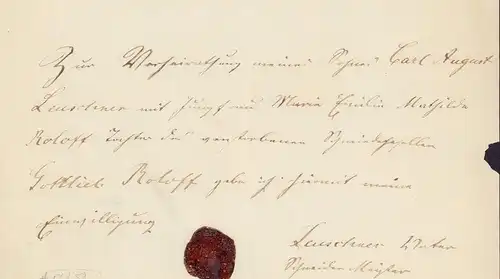 Zur Verheirathung meines Sohnes Carl August
Leuschner mit Jungfrau Maria Emilie Mathilde
Roloff Tochter des verstorbenen Schmiedegesellen
Gottlieb Roloff gebe ich hiermit meine
Einwilligung
Leuschner Vater
Schneider Meister